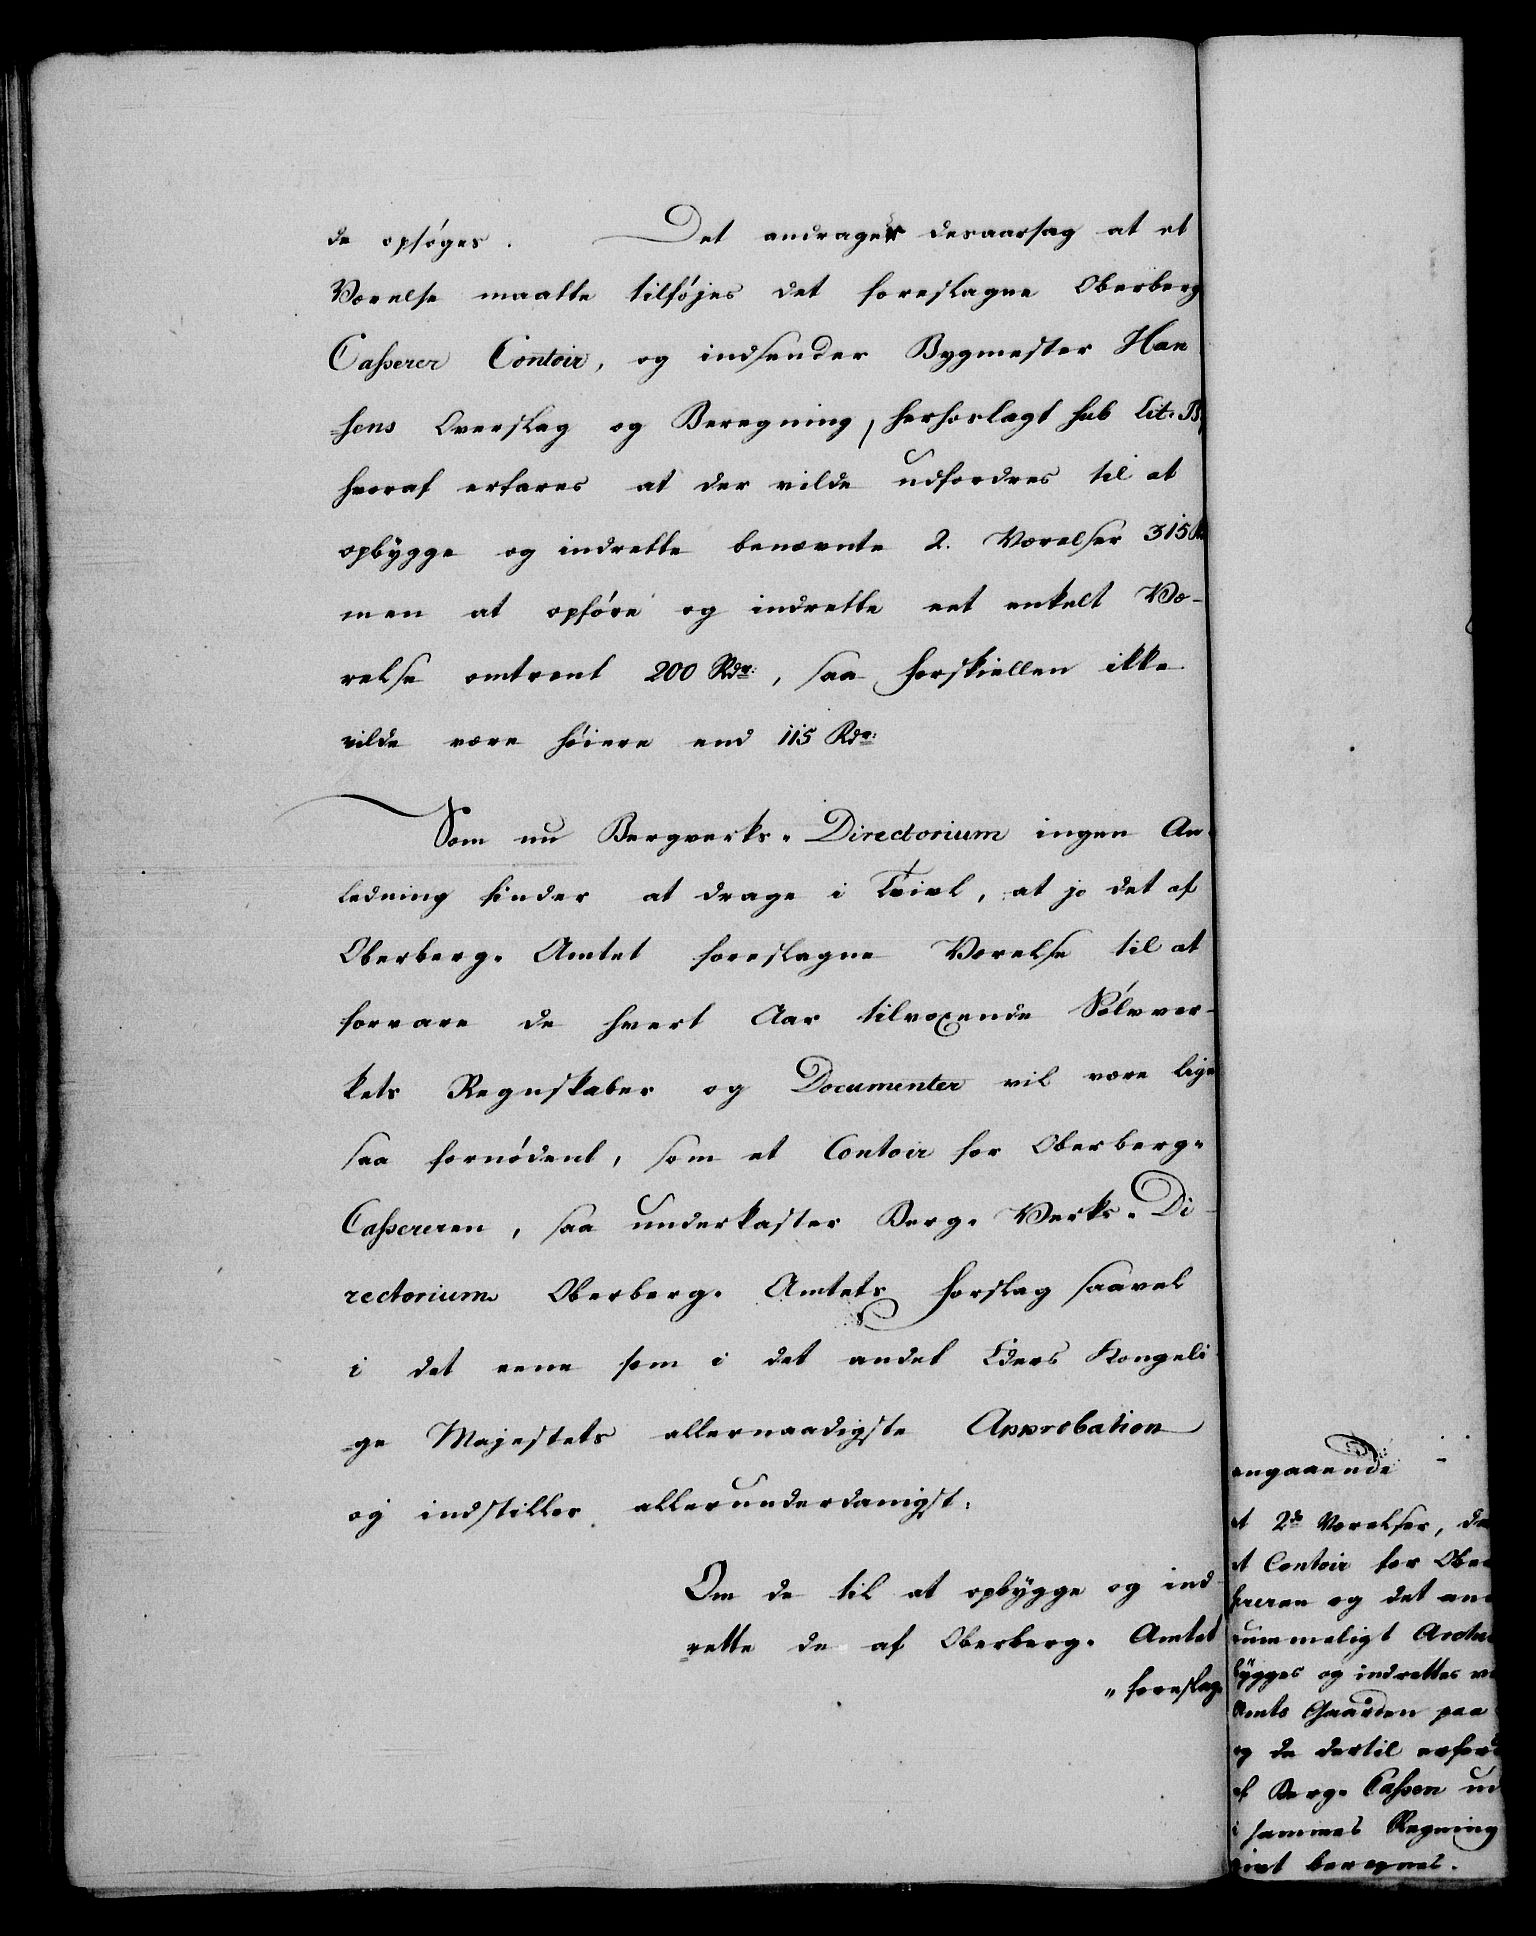 de opsøges. Det andrager desaarsag at et
Værelse maatte tilføjes det foreslagne Oberberg
Casserer Contoir, og indsender Bygmester Han
sens Overslag og Beregning, herhoslagt sub Lit. B,
hvoraf erfares at der vilde udfordres til at
opbygge og indrette benævnte 2. Værelser 315
men at opføre og indrette eet enkelt Væ-
relse omtrent 200 Rdr:, saa forskiellen ikke
vilde være høiere end 115 Rdr:
Som nu Bergverks-Directorium ingen An-
ledning finder at drage i Tvivl, at jo det af
Oberberg-Amtet foreslagne Værelse til at
forvare de hvert Aar tilvoxende Sølvver-
kets Regnskaber og Documenter vil være lige
saa fornødent, som et Contoir for Oberberg-
Cassereren, saa underkaster Berg-Verks-Di-
rectorium Oberberg-Amtets forslag saavel
i det eene som i det andet Eders Kongeli-
ge Majestets allernaadigste Approbation
og indstiller allerunderdanigst:
Om de til at opbygge og ind-
rette de af Oberberg-Amtet
"foreslag-
angaaende
at 2de Værelser, de
et Contoir for Ober
sereren og det and
rummeligt Archi
bygges og indrettes ve
Amts Gaarden paa
og de dertil erford
af Berg-Cassen ud
i sammes Regning
givt beregnes.